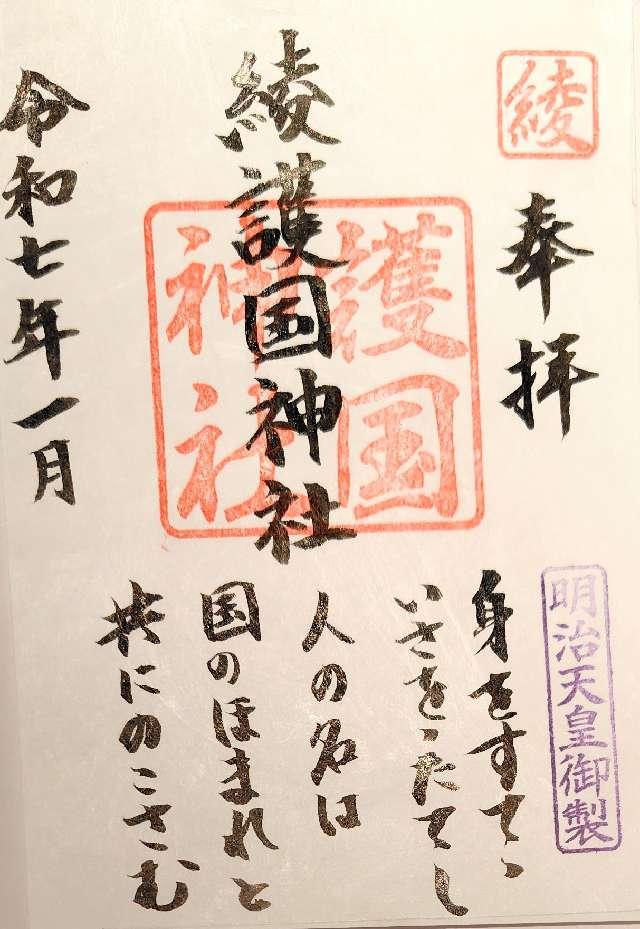 綾
奉拝
綾護国神社
護国
神社
令和七年一月
明治天皇御製
身をすてゝ
いさをゝたてし
人の名は
国のほまれと
共にのこさむ